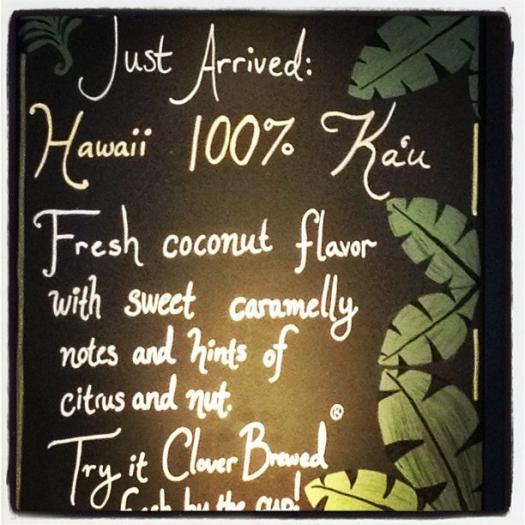 Just Arrived:
Hawaii 100% Ka'u
Fresh coconut flavor
with sweet caramelly
notes and hints of
citrus and nut.
Try it Clover Brewed®
fresh by the cup!